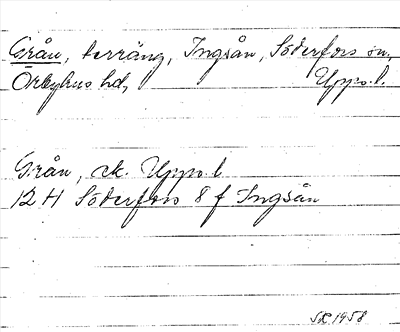 Grån, terräng, Ingsån, Söderfors sn,
Örbyhus hd, Upps.l.
Grån, ek. Upps.l
12 H Söderfors 8 f Ingsån
SR 1958